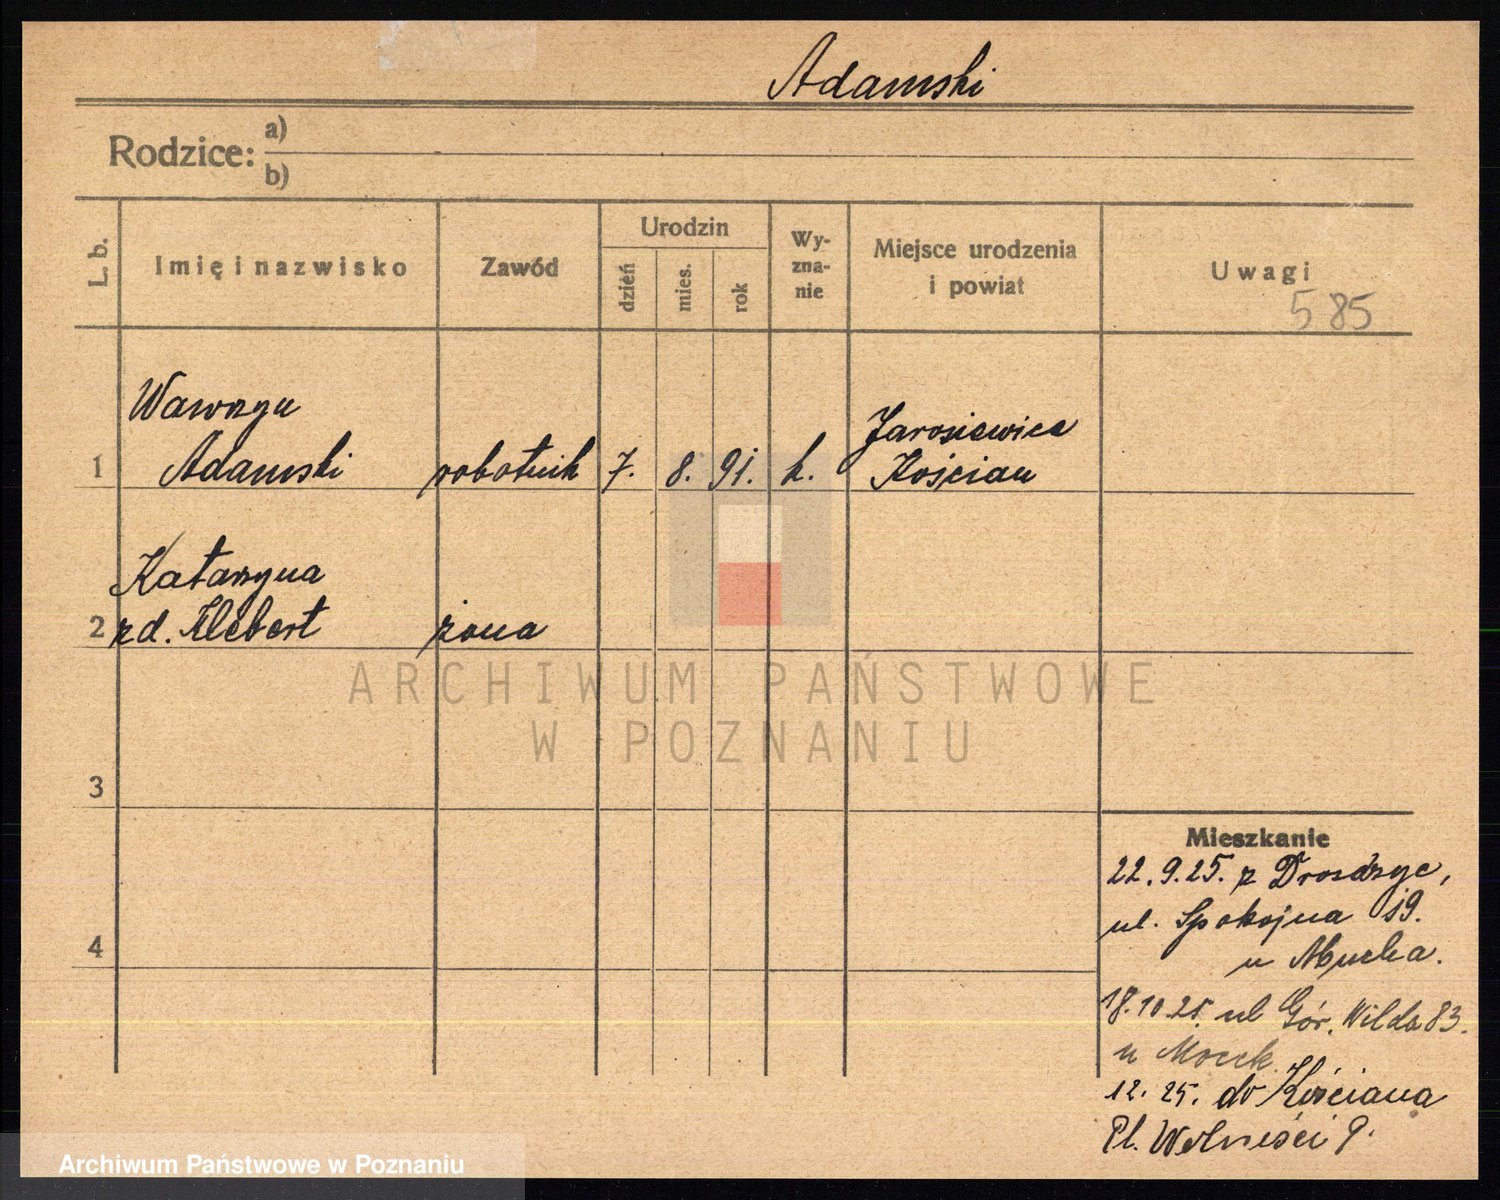 Adamski
Rodzice: a)
b)
L. b.
Imię i nazwisko
Zawód
Urodzin
dzień
mies.
rok
Wy-
zna-
nie
Miejsce urodzenia
i powiat
Uwagi
585
1
Wawrzyn
Adamski
robotnik
7.
8.
91.
k.
Kościan
2
Katarzyna
zd. Klebert
żona
3
4
Mieszkanie
22.9.25. z Drozdzyc,
ul. Spokojna 19.
u Mucha.
18.10.25. ul Gór. Wilda 83.
u Mocek.
12. 25. do Kościana
Pl. Wolności 9.
ARCHIWUM PAŃSTWOWE
W POZNANIU
Archiwum Państwowe w Poznaniu